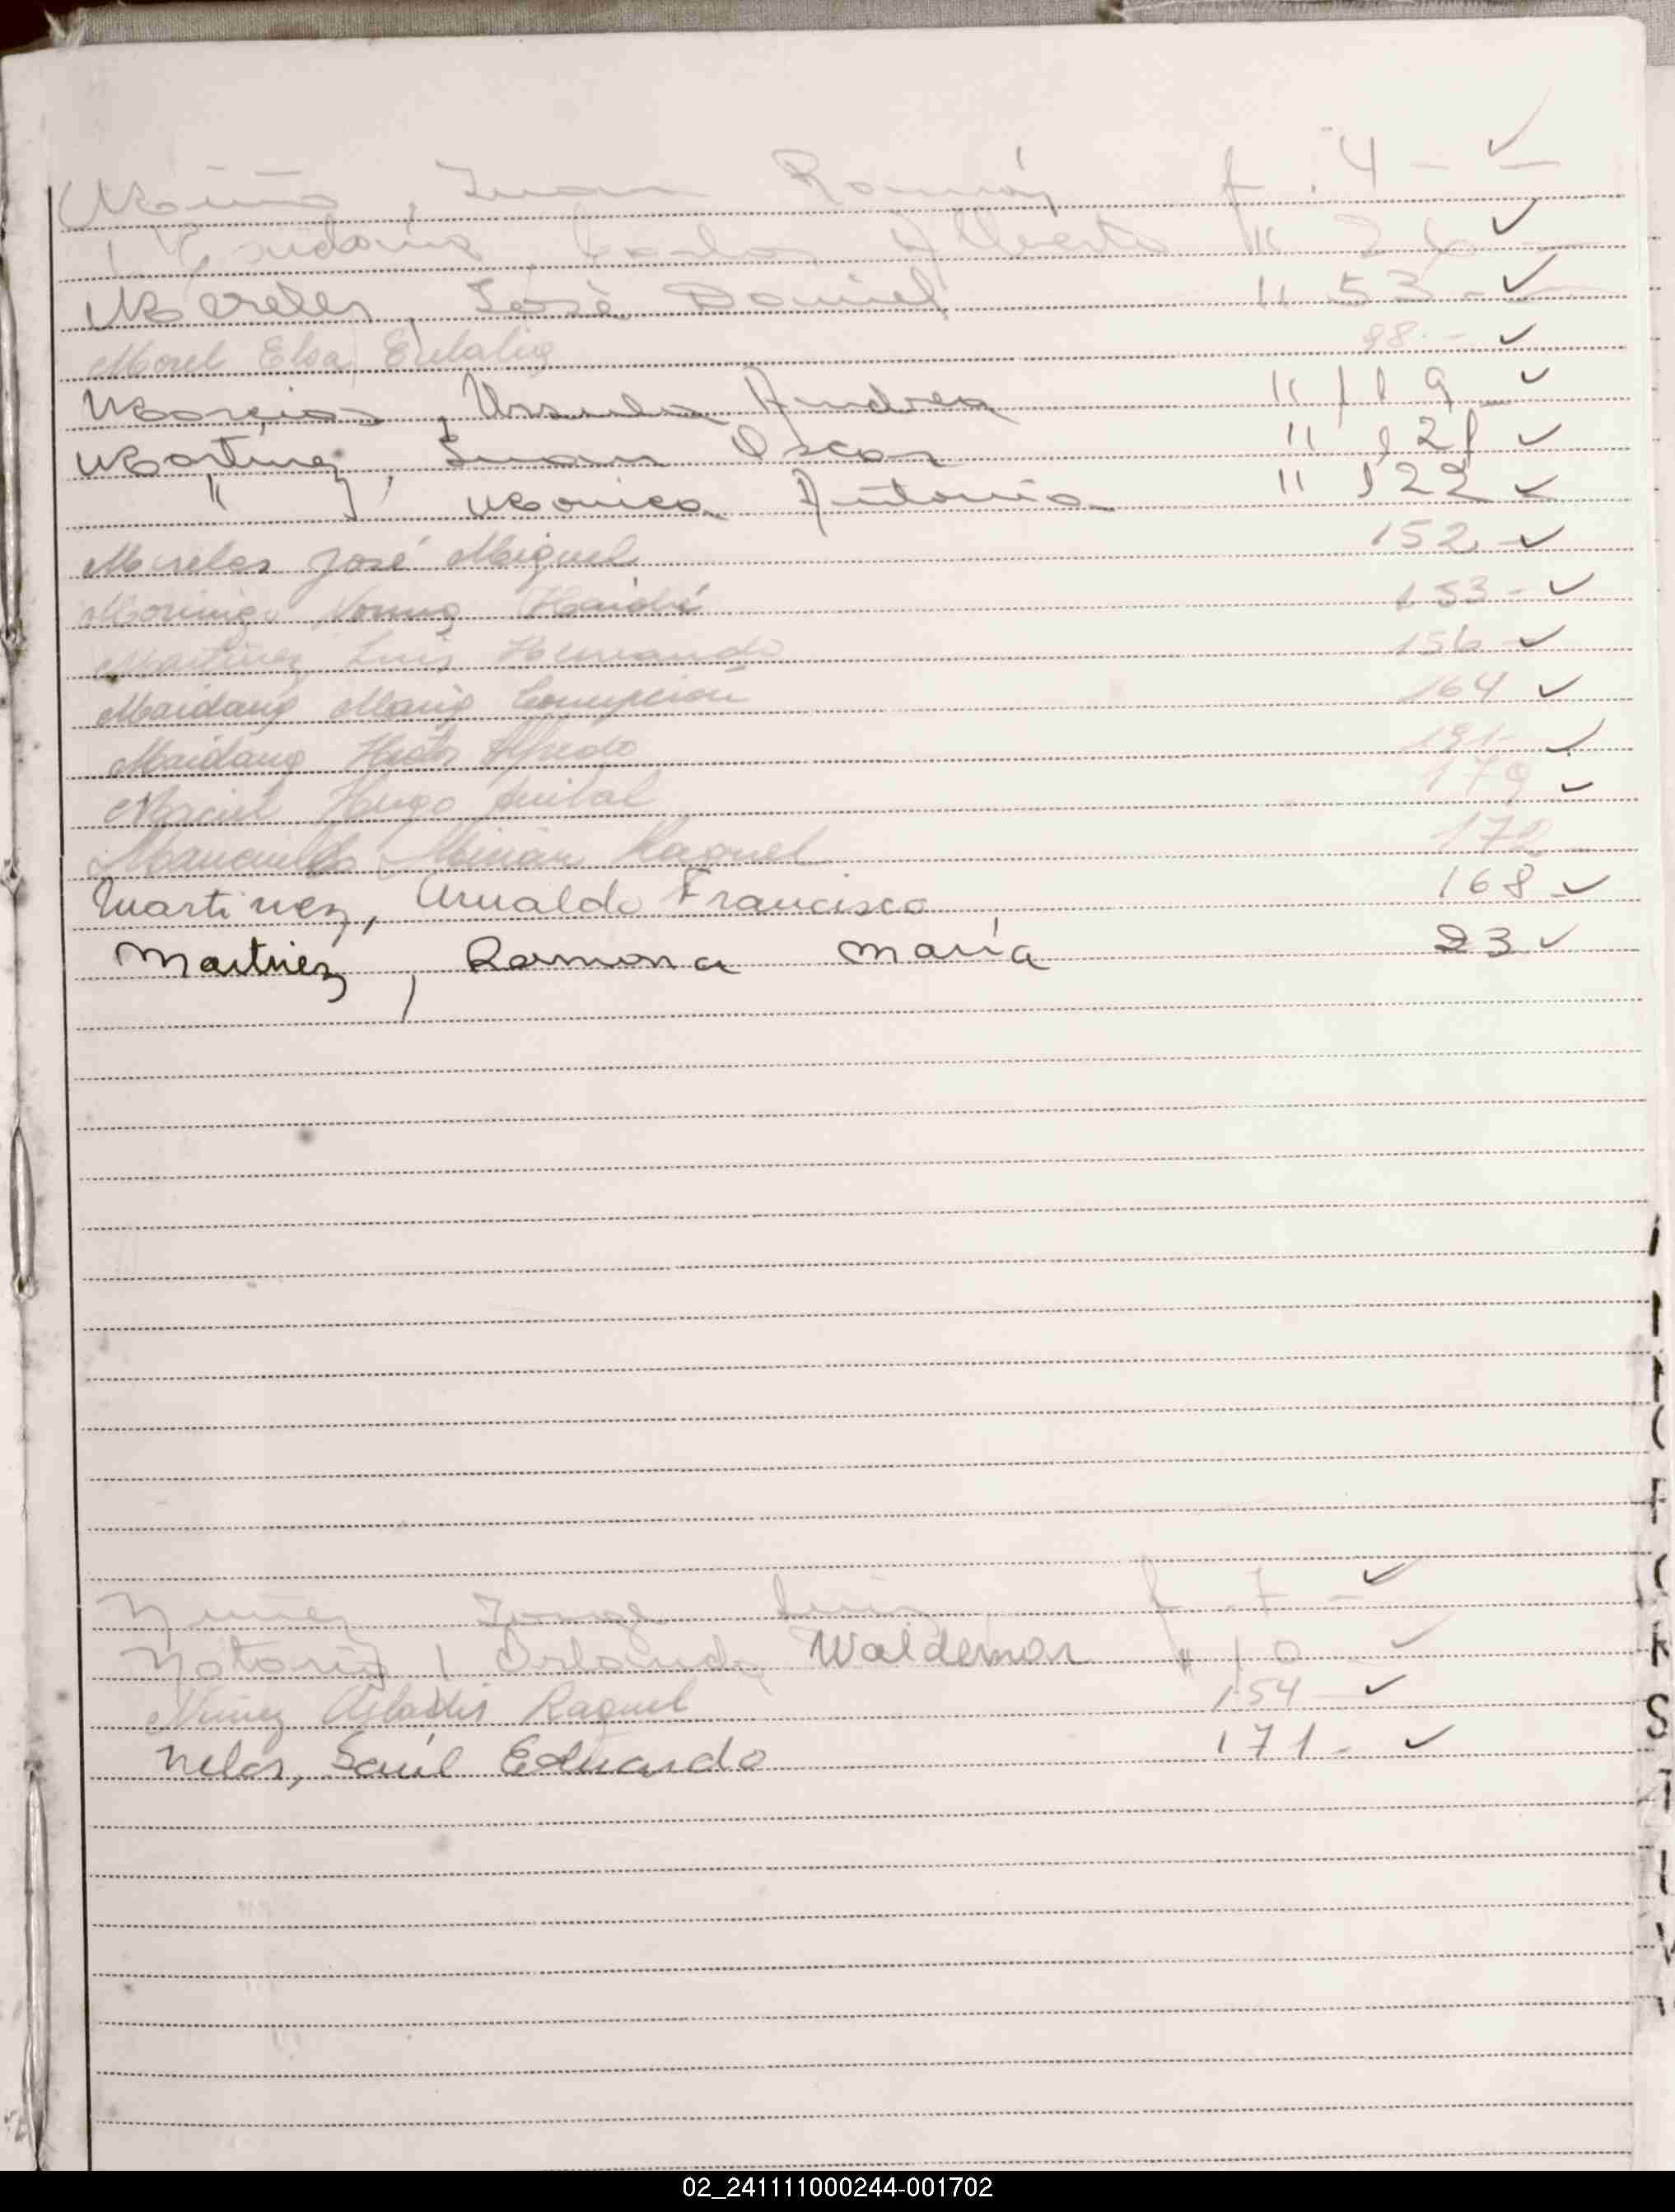 Juan Ramón f. 4 - ✓
Alberto " 26 ✓
Mereles, José Daniel " 53 - ✓
Morel Elsa Eulalia 98 - ✓
Ursula Andrea " 119 ✓
Martinez, Juan Oscar " 121 ✓
" , Monica Antonia " 122 ✓
Mereles José Miguel 152 - ✓
Morinigo Norma Haidé 153 - ✓
Martinez Luis Hernando 156 ✓
Maidana Maria Concepción 164 ✓
Maidana Alfredo 191 - ✓
Maciel Hugo Anibal 179 ✓
Mancuello Mirian Raquel 172
Martinez, Arnaldo Francisco 168 ✓
Martinez, Ramona María 23 ✓
Nuñez Jorge Luis f. 7 - ✓
Orlando Waldemar " 10 ✓
Nuñez Gladis Raquel 154 ✓
Nelos, Saúl Eduardo 171 - ✓
02_241111000244-001702